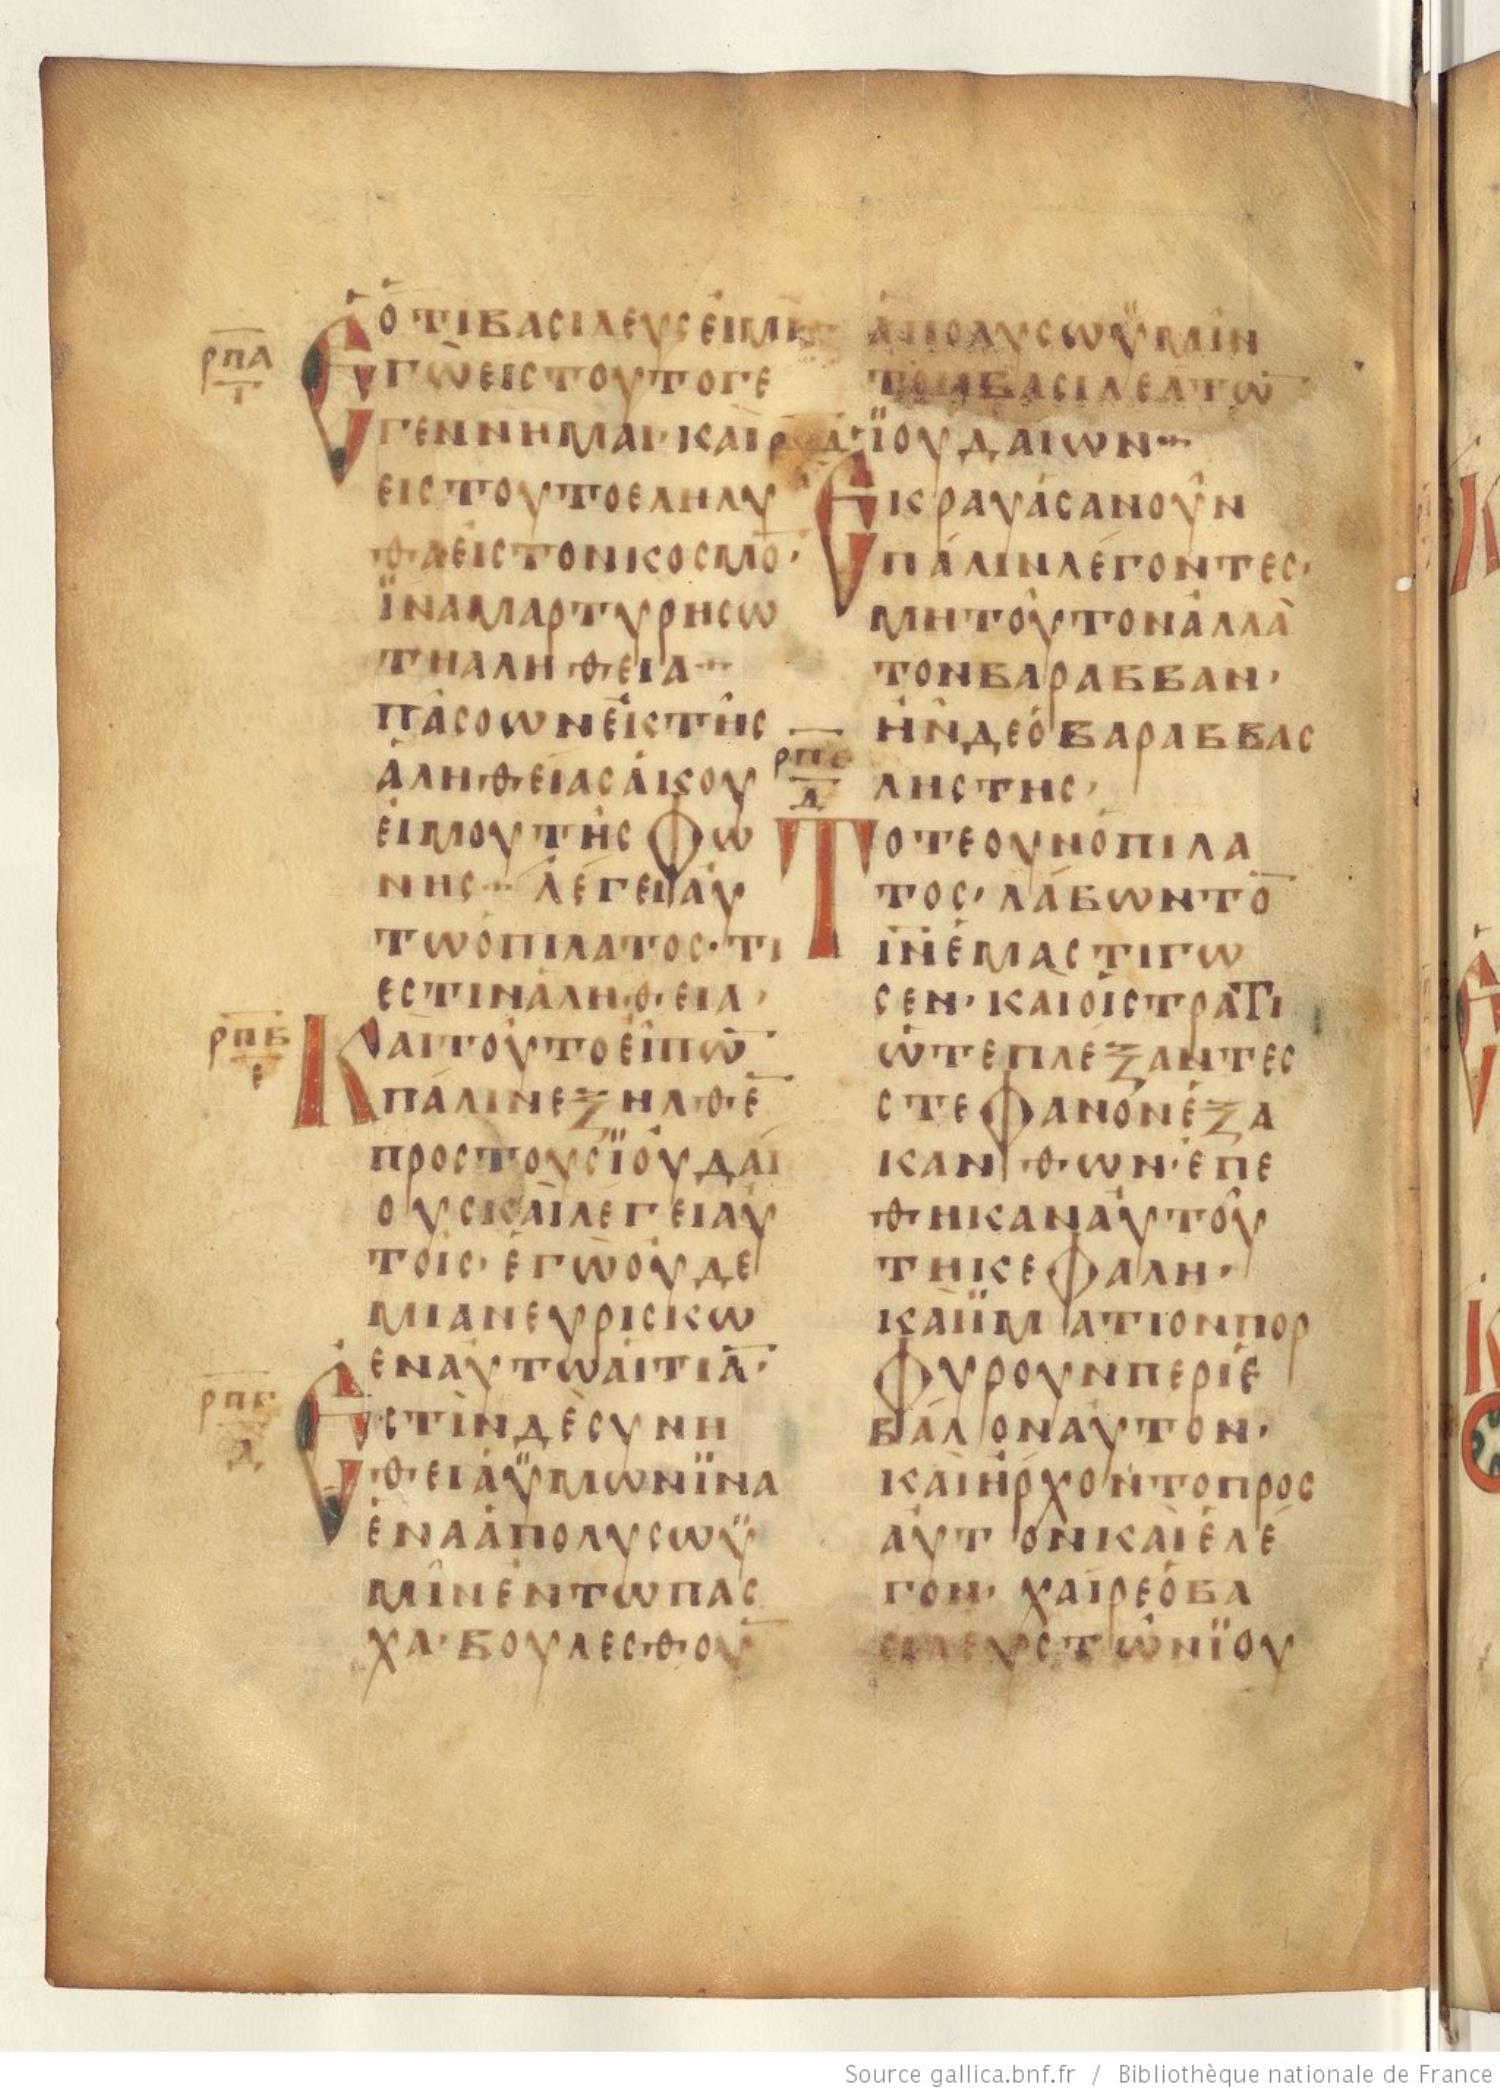 ὅτι βασιλευς ἐιμι
ρπα
γ
Εγὼ εις τουτο γε
γεννημαι· και
εις τουτο εληλυ
θα ἐις τον κοσμο̅·
ϊνα μαρτυρησω
τη αληθεια···
πᾶς ο ων ἐκ τῆς
ἀληθείας ἀκου
ει μου τῆς φω
νης··· λέγει αὐ
τω ὁ πιλατος· τι
εστιν ἀληθεια·
ρπβ
ε
Και τουτο ἐιπω̅
πάλιν εξηλθε̅
προς τους ϊουδαί
ους και λεγει αυ
τοις· ἐγὼ ουδε
μιαν ευρισκω
εν αυτω αιτια̅·
ρπγ
δ
Εστιν δὲ συνη
θεια ϋμων ϊνα
ἑνα ἀπολυσω ϋ
μῖν ἐν τω πασ
χα· βουλεσθ ου̅
ἀπολυσω ϋμιν
τον βασιλεα τω̅
ϊουδαιων···
Εκραυάσαν οῦν
πάλιν λέγοντες·
μη τοῦτον ἀλλὰ
τον βαραββαν·
ῆν δε ὁ βαραββας
ληστης·
ρπε
δ
Τοτε ουν ὁ πιλα
τος· λάβων το̅
ι̅ν̅ ἐμαστιγω
σεν· και οἱ στρατι
ῶτε πλέξαντες
στεφανον ἐξ α
κανθων· ἐπε
θηκαν αὐτοῦ
τη κεφαλη·
και ϊματιον πορ
φυρουν περιἐ
βάλον αυτον·
και ἠρχοντο προς
αὐτον και ἐλε
γον· χαιρε ὁ βα
σιλευς τῶν ϊου
Source gallica.bnf.fr / Bibliothèque nationale de France